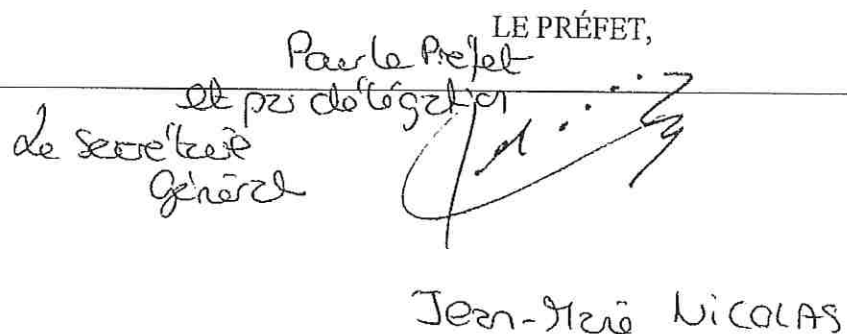 LE PRÉFET,
Pour le Préfet
et par délégation
Le Secrétaire
Général
Jean-Marie NICOLAS